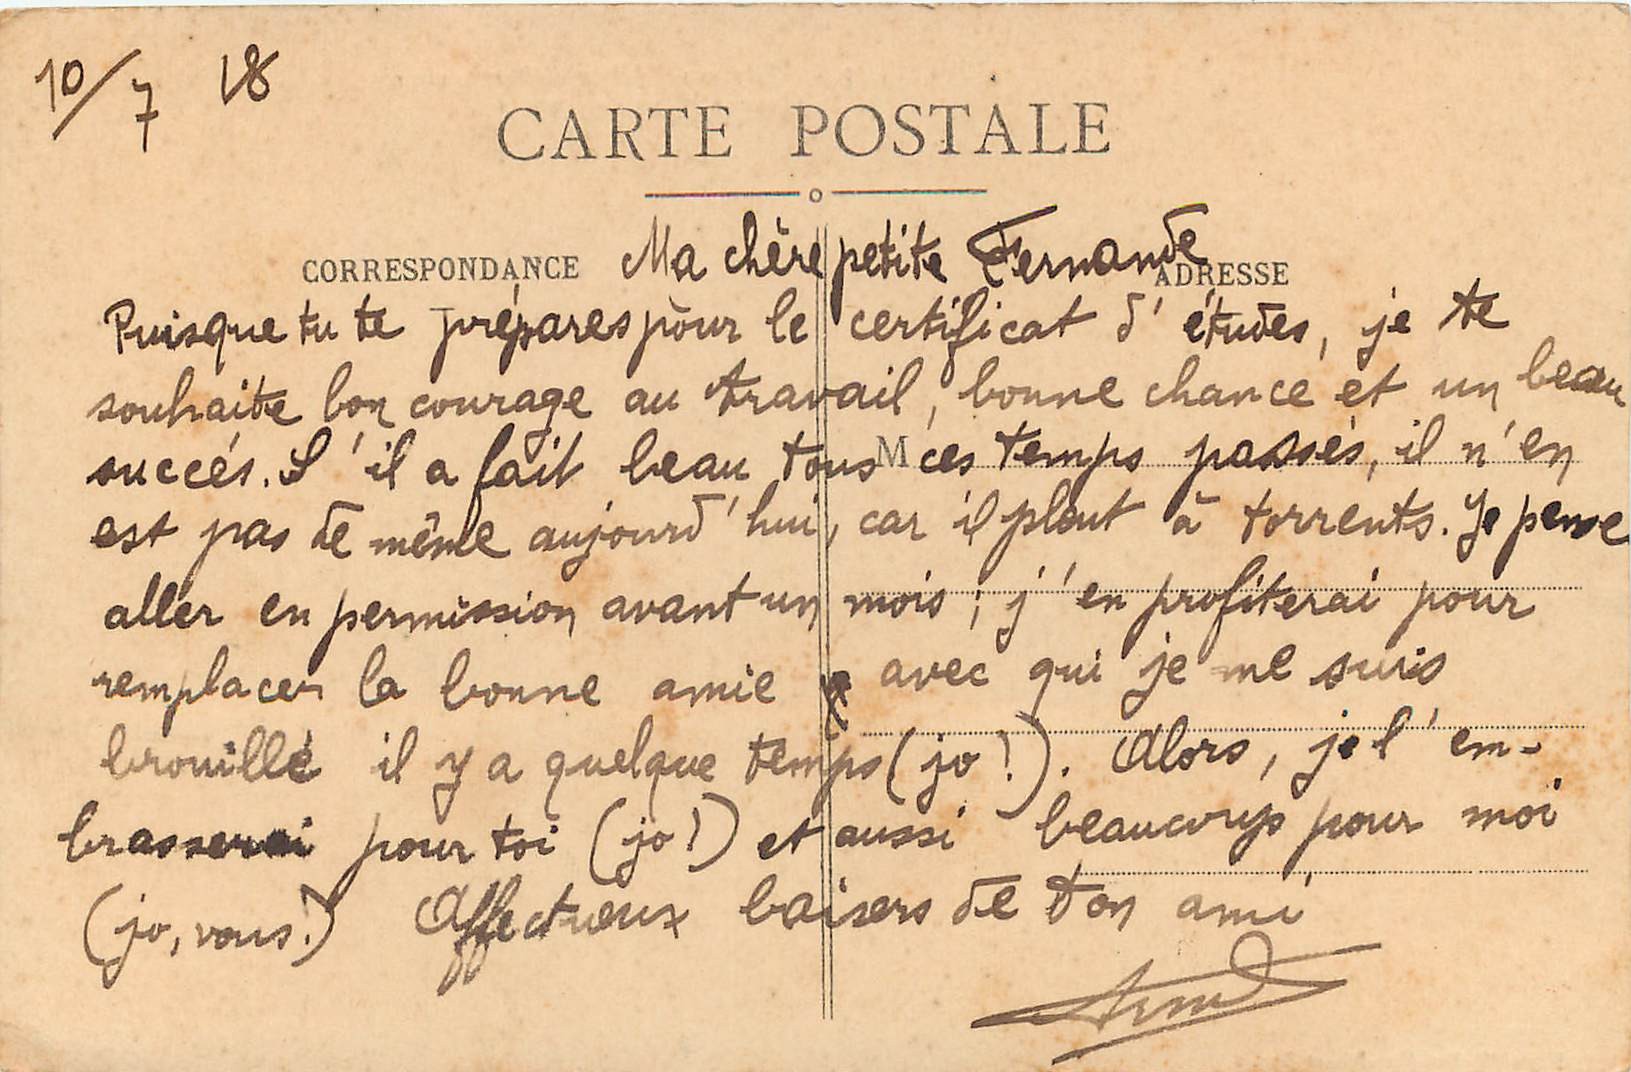 10/7 18
CARTE POSTALE
CORRESPONDANCE
ADRESSE
M
Ma chère petite Fernande
Puisque tu te prépares pour le certificat d'études, je te
souhaite bon courage au travail, bonne chance et un beau
succés. S'il a fait beau tous ces temps passés, il n'en
est pas de même aujourd'hui, car il pleut à torrents. Je pense
aller en permission avant un mois ; j'en profiterai pour
remplacer la bonne amie avec qui je me suis
brouillé il y a quelque temps (jo !). Alors, je l'em-
brasserai pour toi (jo !) et aussi beaucoup pour moi
(jo, vous !) Affectueux baisers de ton ami